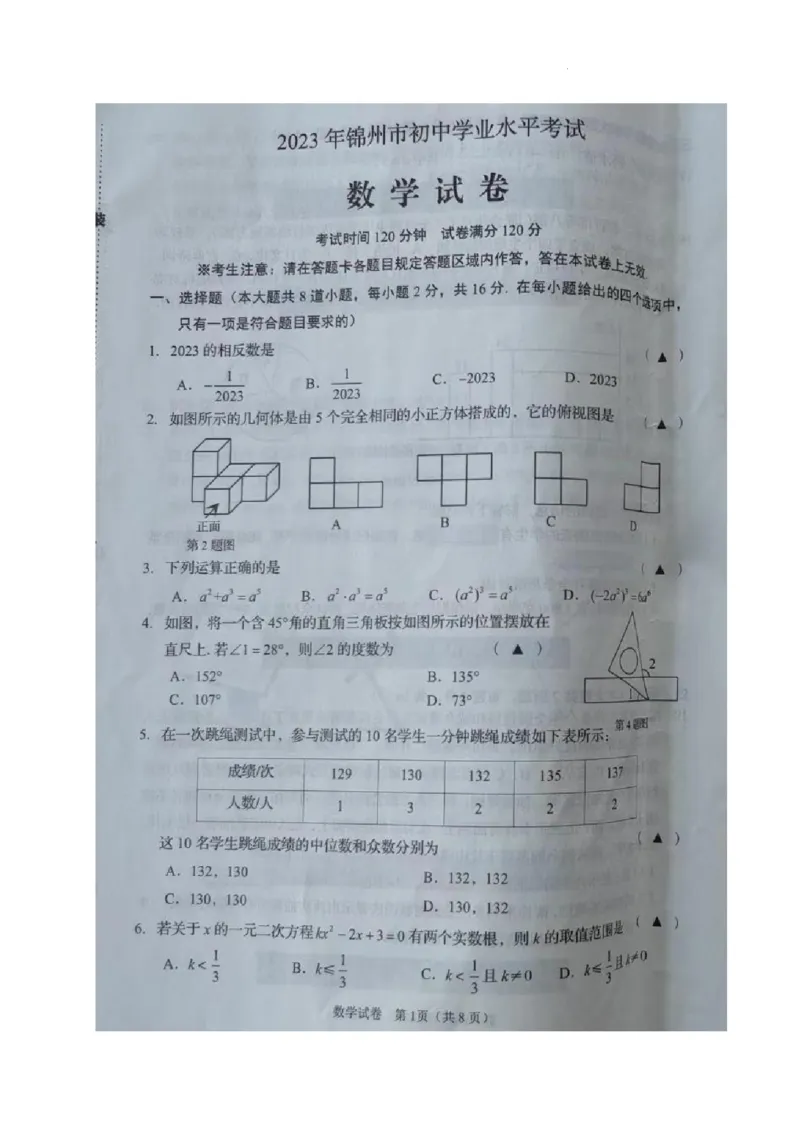 装
2023年锦州市初中学业水平考试
数学试卷
考试时间120分钟 试卷满分120分
※考生注意：请在答题卡各题目规定答题区域内作答，答在本试卷上无效
一、选择题（本大题共8道小题，每小题2分，共16分．在每小题给出的四个选项中，
只有一项是符合题目要求的）
1. 2023的相反数是 （ ▲ ）
A. -1/2023 B. 1/2023 C. -2023 D. 2023
2. 如图所示的几何体是由5个完全相同的小正方体搭成的，它的俯视图是 （ ▲ ）
正面 A B C D
第2题图
3. 下列运算正确的是 （ ▲ ）
A. a²+a³=a⁵ B. a²·a³=a⁵ C. (a²)³=a⁵ D. (-2a²)³=6a⁶
4. 如图，将一个含45°角的直角三角板按如图所示的位置摆放在
直尺上.若∠1=28°，则∠2的度数为 （ ▲ ）
A. 152° B. 135°
C. 107° D. 73°
2
1
第4题图
5. 在一次跳绳测试中，参与测试的10名学生一分钟跳绳成绩如下表所示：
成绩/次 129 130 132 135 137
人数/人 1 3 2 2 2
这10名学生跳绳成绩的中位数和众数分别为 （ ▲ ）
A. 132，130 B. 132，132
C. 130，130 D. 130，132
6. 若关于x的一元二次方程kx²-2x+3=0有两个实数根，则k的取值范围是 （ ▲ ）
A. k<1/3 B. k≤1/3 C. k<1/3且k≠0 D. k≤1/3且k≠0
数学试卷 第1页（共8页）